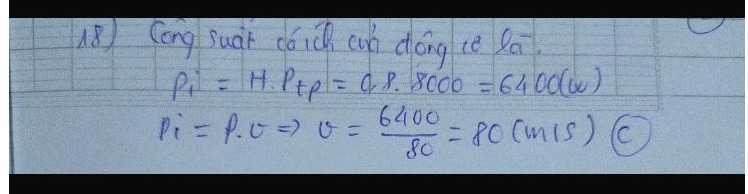 18) Công suất có ích của động cơ là.
Pi = H.Ptp = 0,8.8000 = 6400(w)
Pi = P.v => v = 6400/80 = 80 (m/s) C